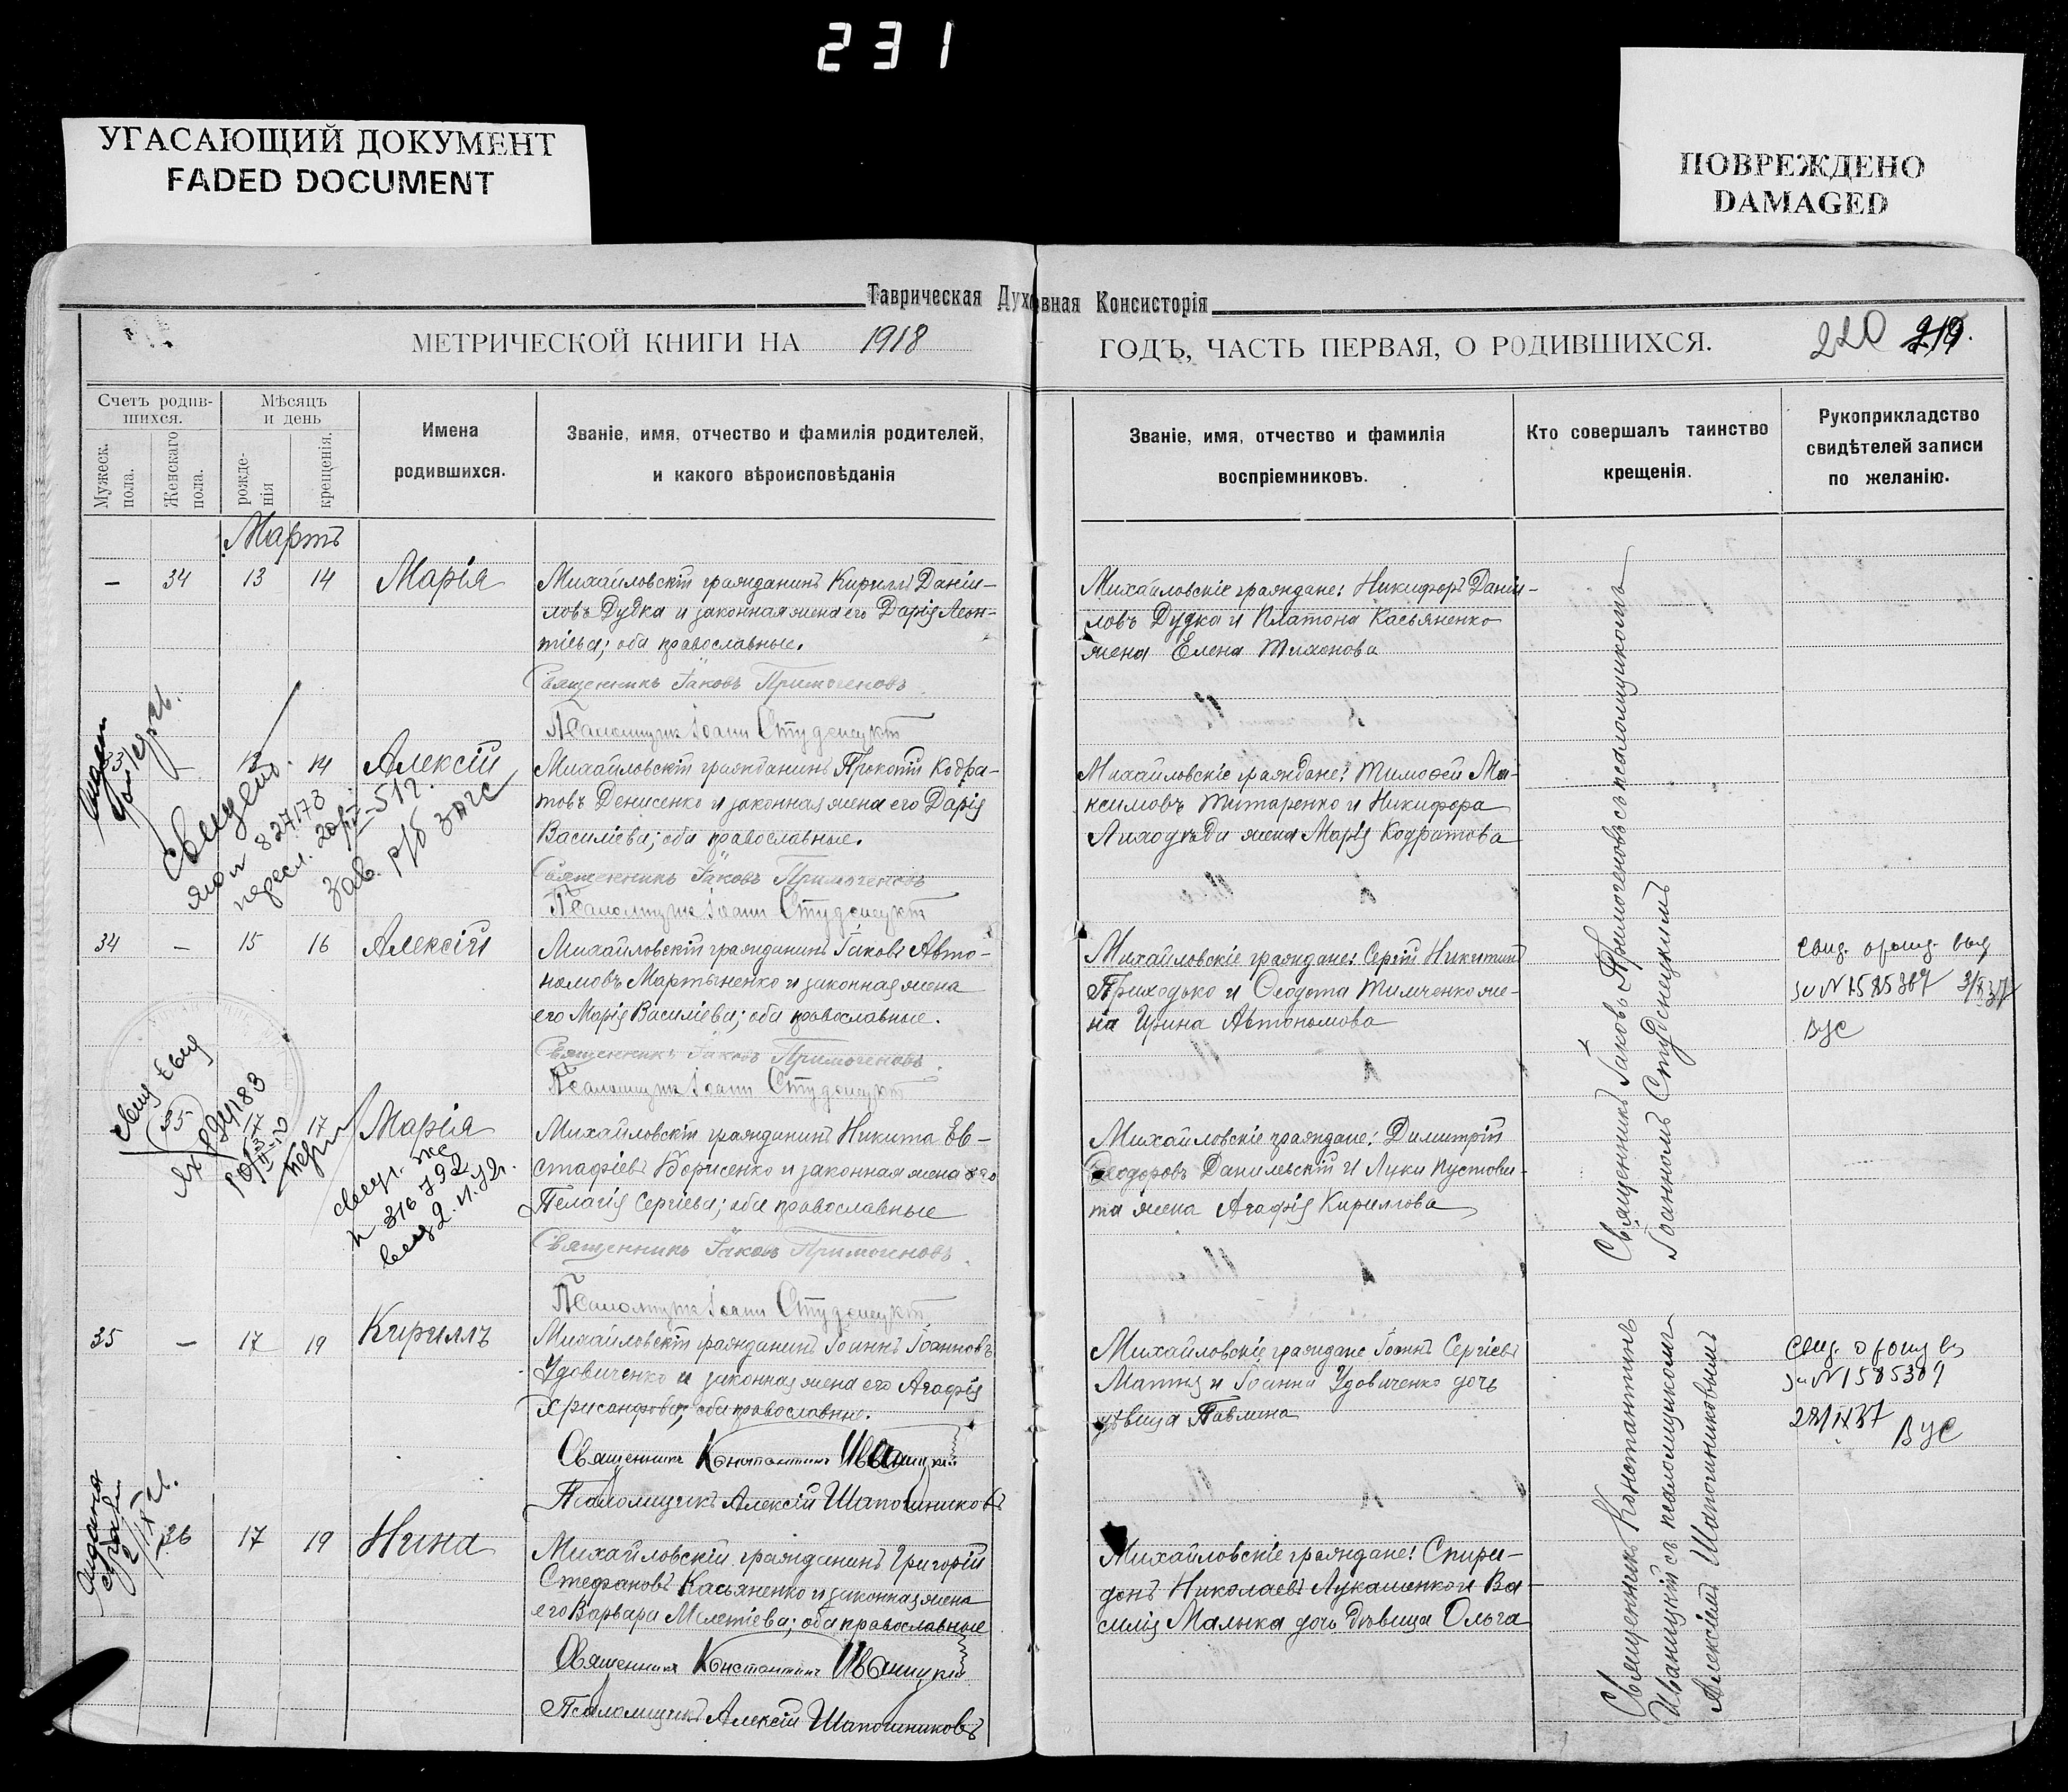 231
УГАСАЮЩИЙ ДОКУМЕНТ
FADED DOCUMENT
ПОВРЕЖДЕНО
DAMAGED
Таврическая Духовная Консисторія
МЕТРИЧЕСКОЙ КНИГИ НА 1918
ГОДЪ, ЧАСТЬ ПЕРВАЯ, О РОДИВШИХСЯ.
220 219.
Счетъ родив-
шихся.
Мужеск.
пола.
Женскаго
пола.
Мѣсяцъ
и день
рожде-
нія
крещенія.
Имена
родившихся.
Званіе, имя, отчество и фамилія родителей,
и какого вѣроисповѣданія
Званіе, имя, отчество и фамилія
воспріемниковъ.
Кто совершалъ таинство
крещенія.
Рукоприкладство
свидѣтелей записи
по желанію.
Мартъ
— 34 13 14 Марія
Михайловскій гражданинъ Кириллъ Даніи-
ловъ Дудка и законная жена его Дарія Леон-
тіева; оба православные.
Священникъ Іаковъ Примогеновъ
Псаломщикъ Іоаннъ Студенецкій
Михайловскіе граждане: Никифоръ Даніи-
ловъ Дудка и Платона Касьяненко
жена Елена Тихонова
33 13 14 Алексій
Михайловскій гражданинъ Прокопій Кодра-
товъ Денисенко и законная жена его Дарія
Василіева; оба православные.
Священникъ Іаковъ Примогеновъ
Псаломщикъ Іоаннъ Студенецкій
Михайловскіе граждане: Тимофей Ма-
ксимовъ Титаренко и Никифора
Лиходѣда жена Марія Кодратова
827173
пересл.
зав. р/б загс
34 — 15 16 Алексій
Михайловскій гражданинъ Іаковъ Авто-
номовъ Мартыненко и законная жена
его Марія Василіева; оба православные.
Священникъ Іаковъ Примогеновъ
Псаломщикъ Іоаннъ Студенецкій
Михайловскіе граждане: Сергій Никитинъ
Приходько и Феодота Тимченко же-
на Ирина Автономова
№ 1585387
ВУС
35 17 17 Марія
Михайловскій гражданинъ Никита Ев-
стафіевъ Борисенко и законная жена его
Пелагія Сергіева; оба православные
Священникъ Іаковъ Примогеновъ
Псаломщикъ Іоаннъ Студенецкій
Михайловскіе граждане: Димитрій
Феодоровъ Данильскій и Луки Пустови-
та жена Агафія Кириллова
316792
Священникъ Іаковъ Примогеновъ съ псаломщикомъ
Іоанномъ Студенецкимъ
35 — 17 19 Кириллъ
Михайловскій гражданинъ Іоаннъ Іоанновъ
Удовиченко и законная жена его Агафія
Хрисанфова; оба православны.
Священникъ Константинъ Иваницкій
Псаломщикъ Алексій Шапошниковъ
Михайловскіе граждане Іоаннъ Сергіевъ
и Іоанна Удовиченко дочь
дѣвица Павлина
№ 1585389
ВУС
36 17 19 Нина
Михайловскій гражданинъ Григорій
Стефановъ Касьяненко и законная жена
его Варвара Мелетіева; оба православные
Священникъ Константинъ Иваницкій
Псаломщикъ Алексій Шапошниковъ
Михайловскіе граждане: Спири-
донъ Николаевъ Лукашенко и Ва-
силія Малыка дочь дѣвица Ольга
Священникъ Константинъ
Иваницкій съ псаломщикомъ
Алексіемъ Шапошниковымъ